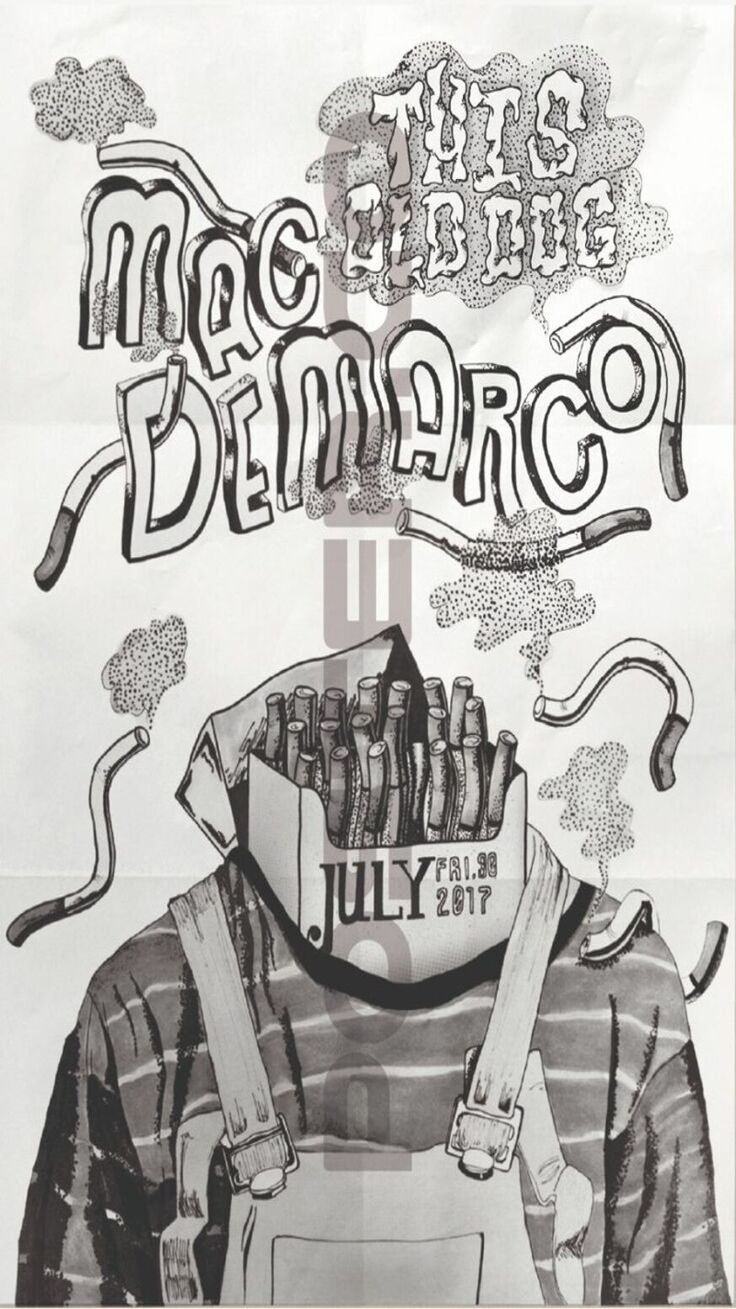 THIS
OLD DOG
MAC
DEMARCO
JULY FRI.30
2017